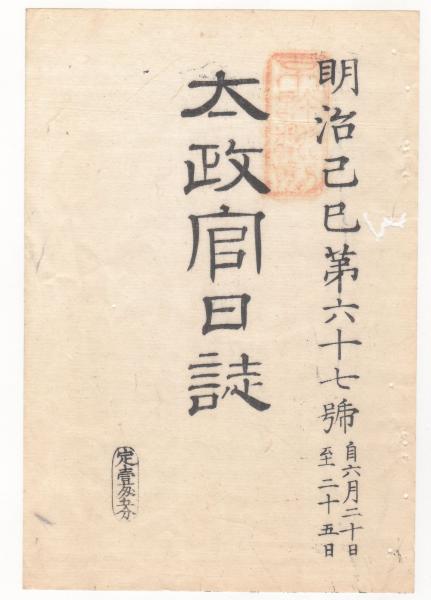 明治己巳第六十七號
自六月二十日
至二十五日
太政官日誌
定壹匁五分